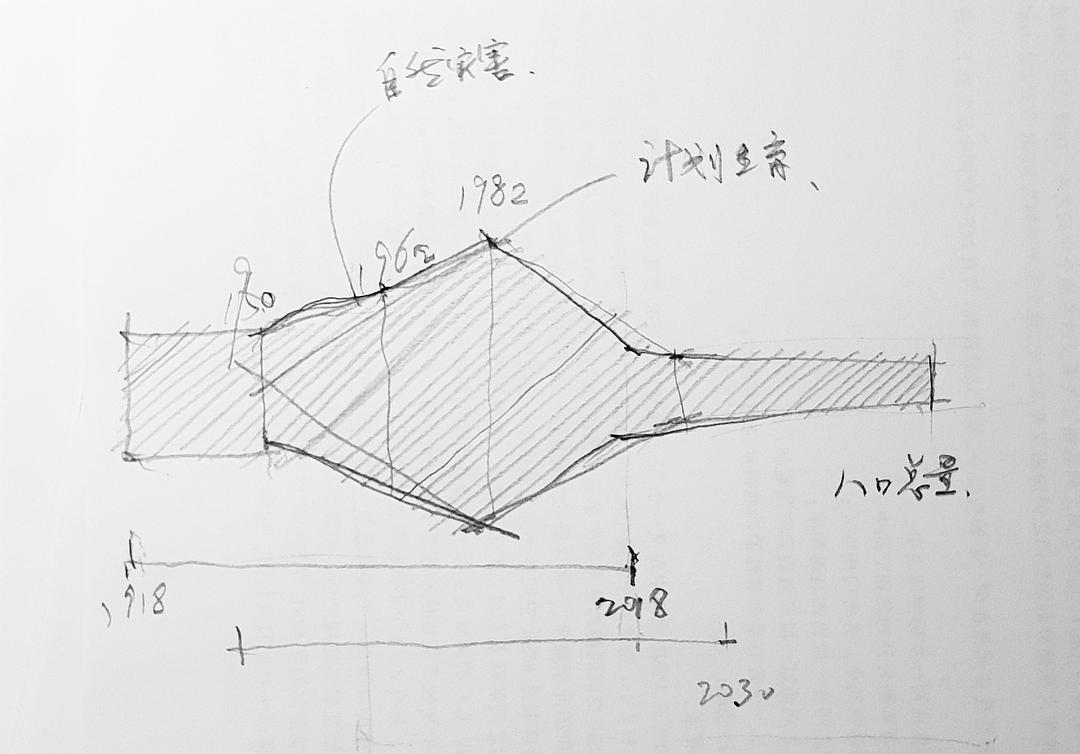 自然灾害.
计划生育、
1982
1962
1950
人口总量.
1918
2018
2030